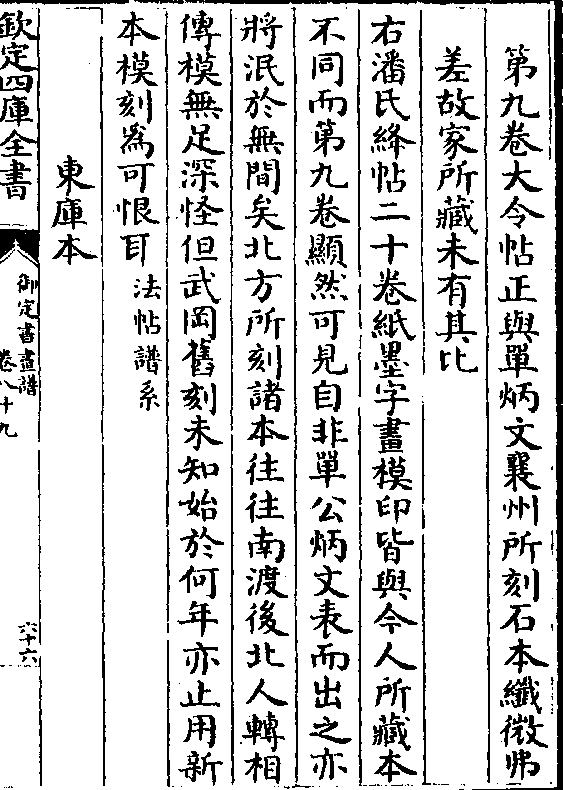 第九卷大令帖正與單炳文襄州所刻石本纖微弗
差故家所藏未有其比
右潘氏絳帖二十卷紙墨字畫模印皆與今人所藏本
不同而第九卷顯然可見自非單公炳文表而出之亦
將泯於無聞矣北方所刻諸本往往南渡後北人轉相
傳模無足深怪但武岡舊刻未知始於何年亦止用新
本模刻為可恨耳 法帖譜系
東庫本
欽定四庫全書
御定書畫譜
卷八十九
六十六